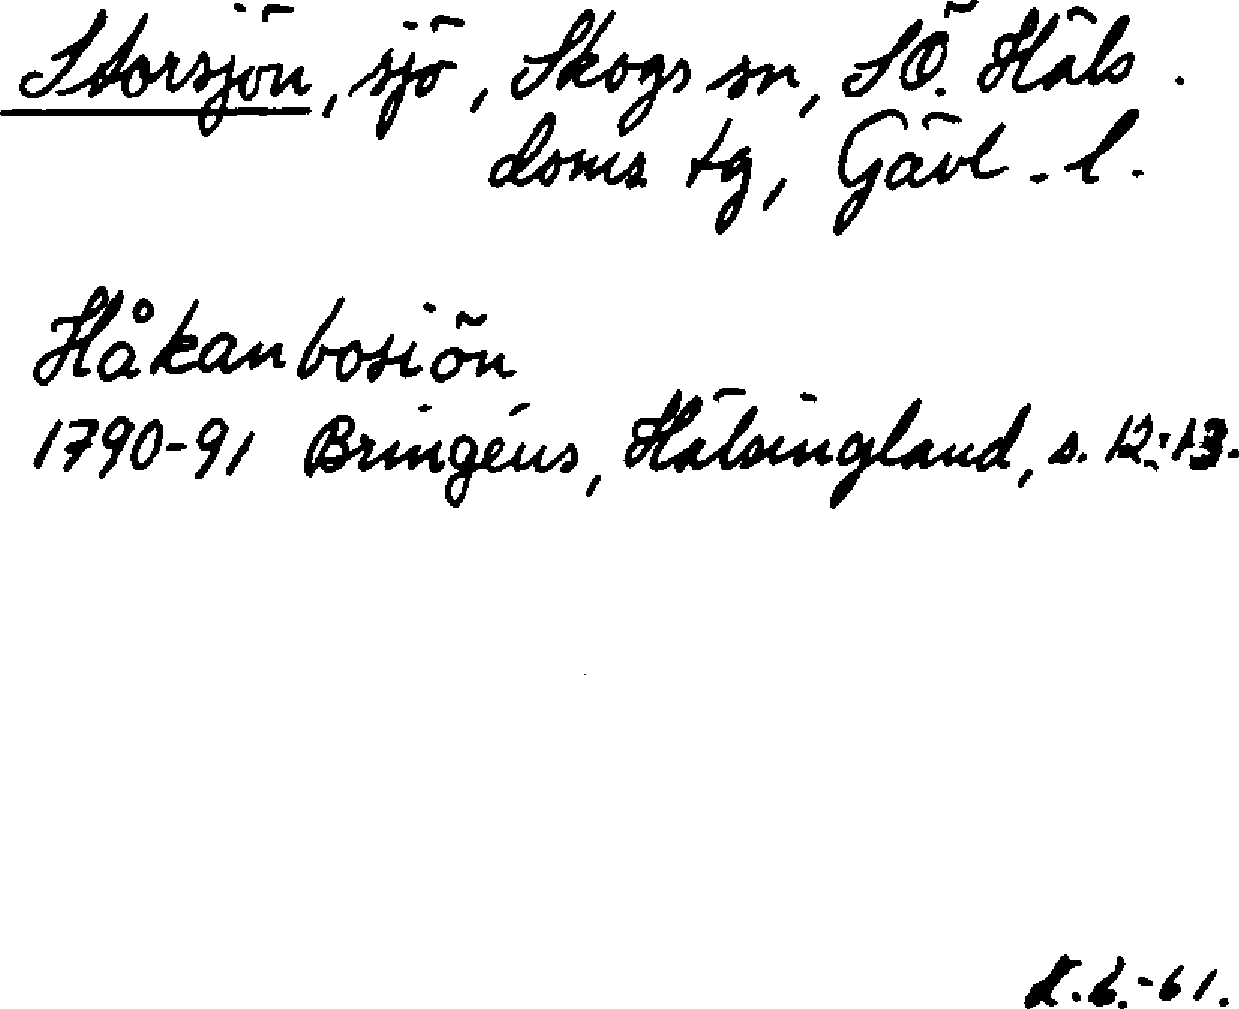 Storsjön, sjö, Skogs sn, SÖ. Häls.
doms tg, Gävl. l.
Håkanbosiön
1790-91 Bringéus, Hälsingland, s. 12-13.